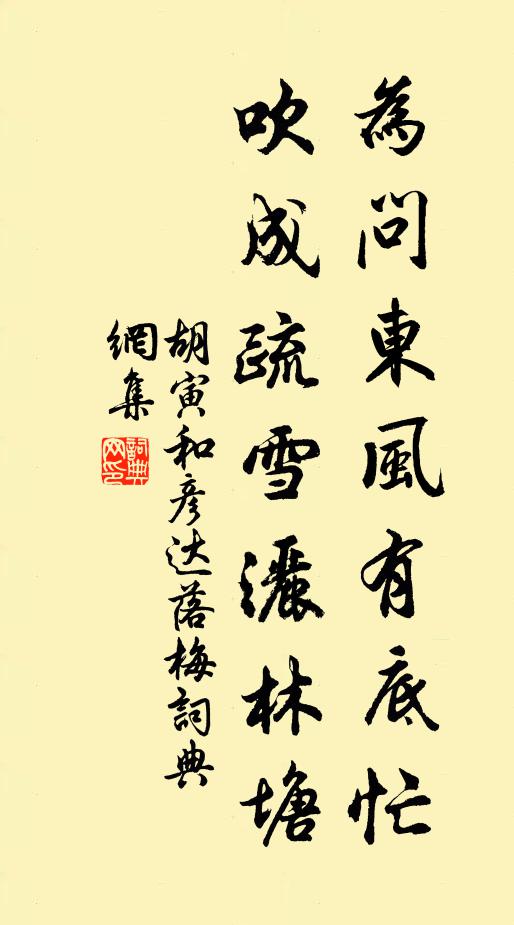 為問東風有底忙
吹成疏雪灑林塘
胡寅和彥达落梅詞典
網集
詞典
网印